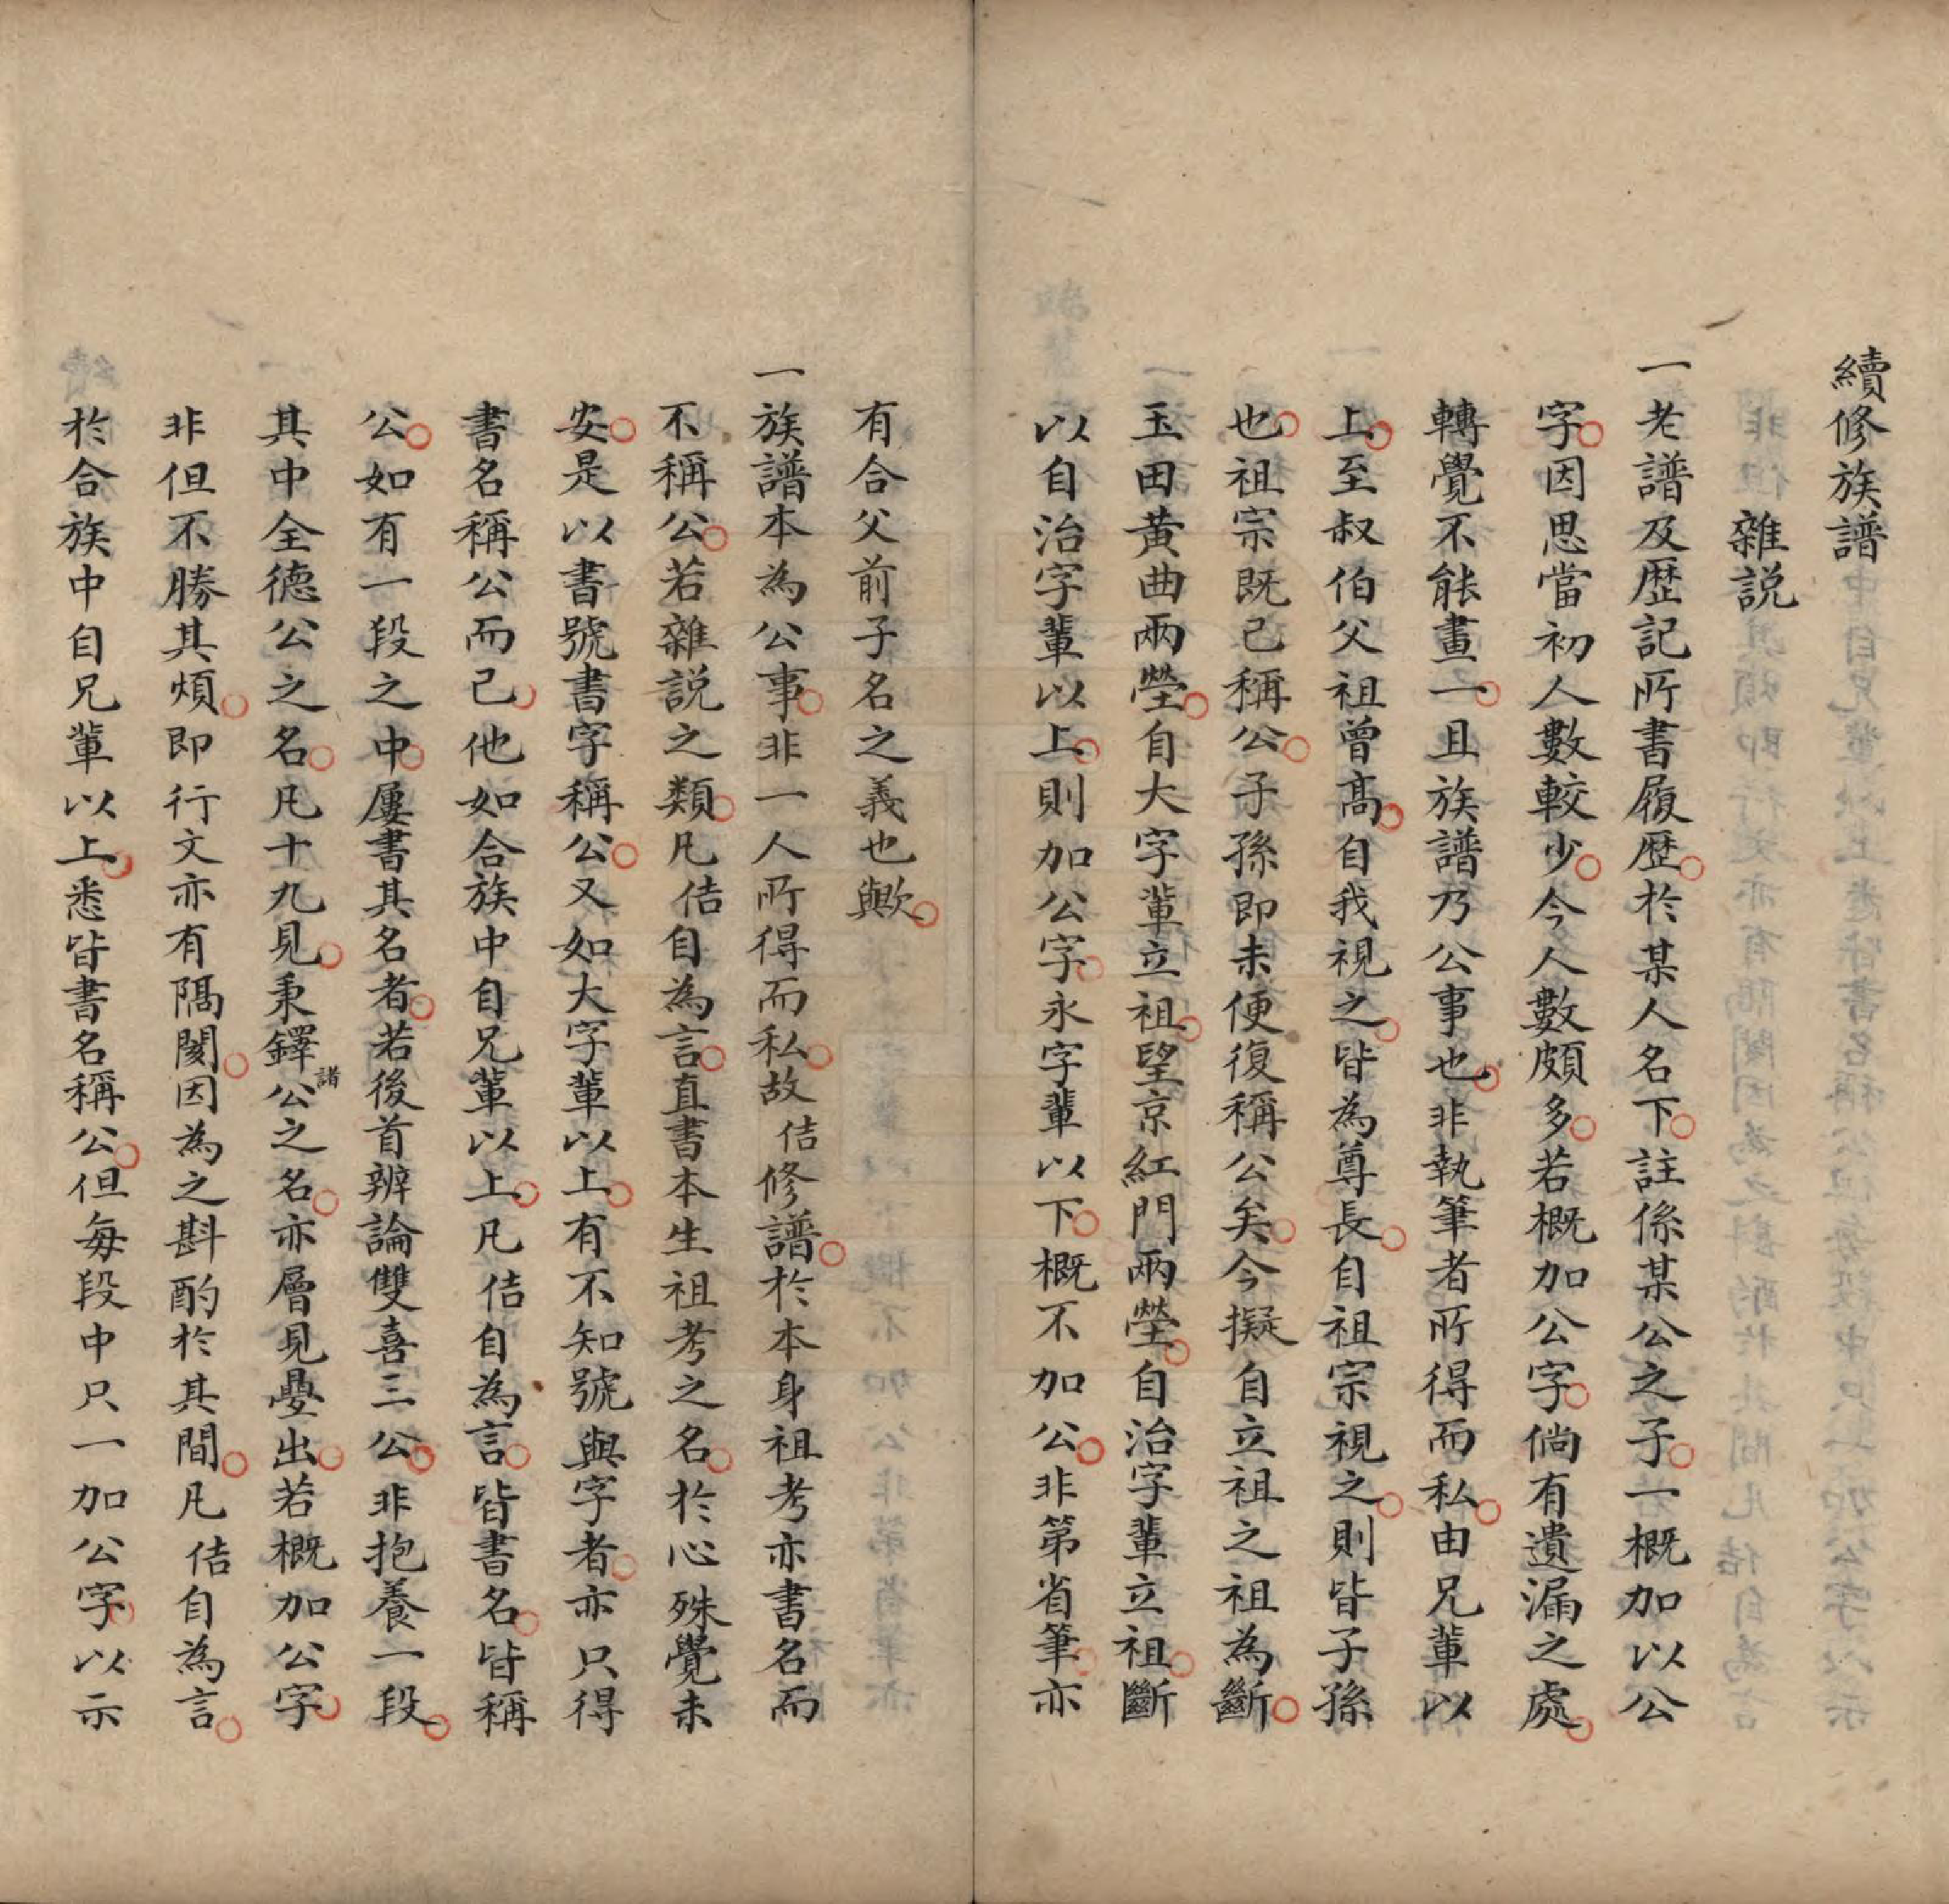 續修族譜
雜説
一老譜及歴記所書履歴於某人名下註係某公之子一概加以公
字因思當初人數較少今人數頗多若概加公字倘有遺漏之處
轉覺不能畫一且族譜乃公事也非執筆者所得而私由兄輩以
上至叔伯父祖曾高自我視之皆為尊長自祖宗視之則皆子孫
也祖宗既已稱公子孫即未便復稱公矣今擬自立祖之祖為斷
玉田黄曲兩塋自大字輩立祖望京紅門兩塋自治字輩立祖斷
以自治字輩以上則加公字永字輩以下概不加公非第省筆亦
有合父前子名之義也歟
一族譜本為公事非一人所得而私故佶修譜於本身祖考亦書名而
不稱公若雜説之類凡佶自為言直書本生祖考之名於心殊覺未
安是以書號書字稱公又如大字輩以上有不知號與字者亦只得
書名稱公而已他如合族中自兄輩以上凡佶自為言皆書名皆稱
公如有一段之中屢書其名者若後首辨論雙喜三公非抱養一段
其中全德公之名凡十九見秉鐸諸公之名亦層見疊出若概加公字
非但不勝其煩即行文亦有隔閡因為之斟酌於其間凡佶自為言
於合族中自兄輩以上悉皆書名稱公但每段中只一加公字以示